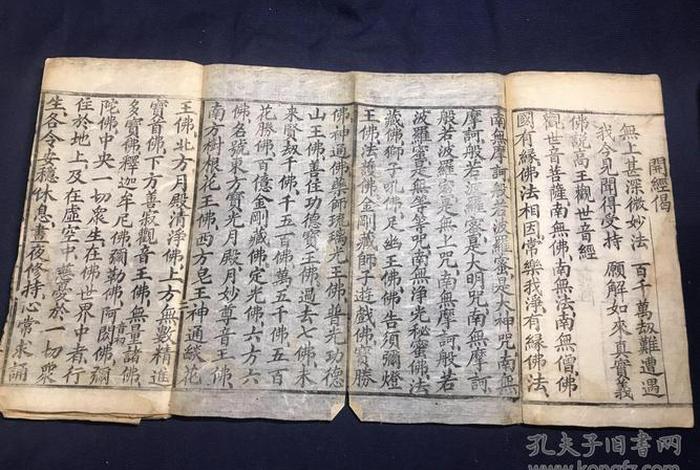 開經偈
無上甚深微妙法 百千萬劫難遭遇
我今見聞得受持 願解如來真實義
佛說高王觀世音經
觀世音菩薩南無佛南無法南無僧佛
國有緣佛法相因常樂我淨有緣佛法
南無摩訶般若波羅蜜是大神咒南無
摩訶般若波羅蜜是大明咒南無摩訶
般若波羅蜜是無上咒南無摩訶般若
波羅蜜是無等等咒南無淨光秘蜜佛法
藏佛獅子吼佛神足幽王佛佛告須彌燈
王佛法護佛金剛藏師子遊戲佛寶勝
佛神通佛藥師琉璃光王佛普光功德
山王佛善住功德寶王佛過去七佛未
來賢劫千佛千五百佛萬五千佛五百
花勝佛百億金剛藏佛定光佛六方六
佛名號東方寶光月殿月妙尊音王佛
南方樹根花王佛西方皂王神通燄花
王佛北方月殿清淨佛上方無數精進
寶首佛下方善寂觀音王佛無量諸佛
多寶佛釋迦牟尼佛彌勒佛阿閦佛彌
陀佛中央一切眾生在佛世界中者行
住於地上及在虛空中慈憂於一切眾
生各令安穩休息晝夜修持心常求誦
孔夫子旧书网